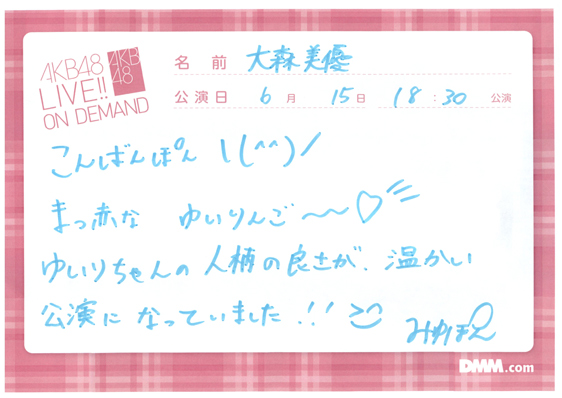 AKB48
LIVE!!
ON DEMAND
AKB
48
名前 大森美優
公演日 6月 15日 18:30 公演
こんばんぽん \(^^)/
まっ赤な ゆいりんご〜〜♡
ゆいりちゃんの人柄の良さが、温かい
公演になっていました!!
みゆぽん
DMM.com